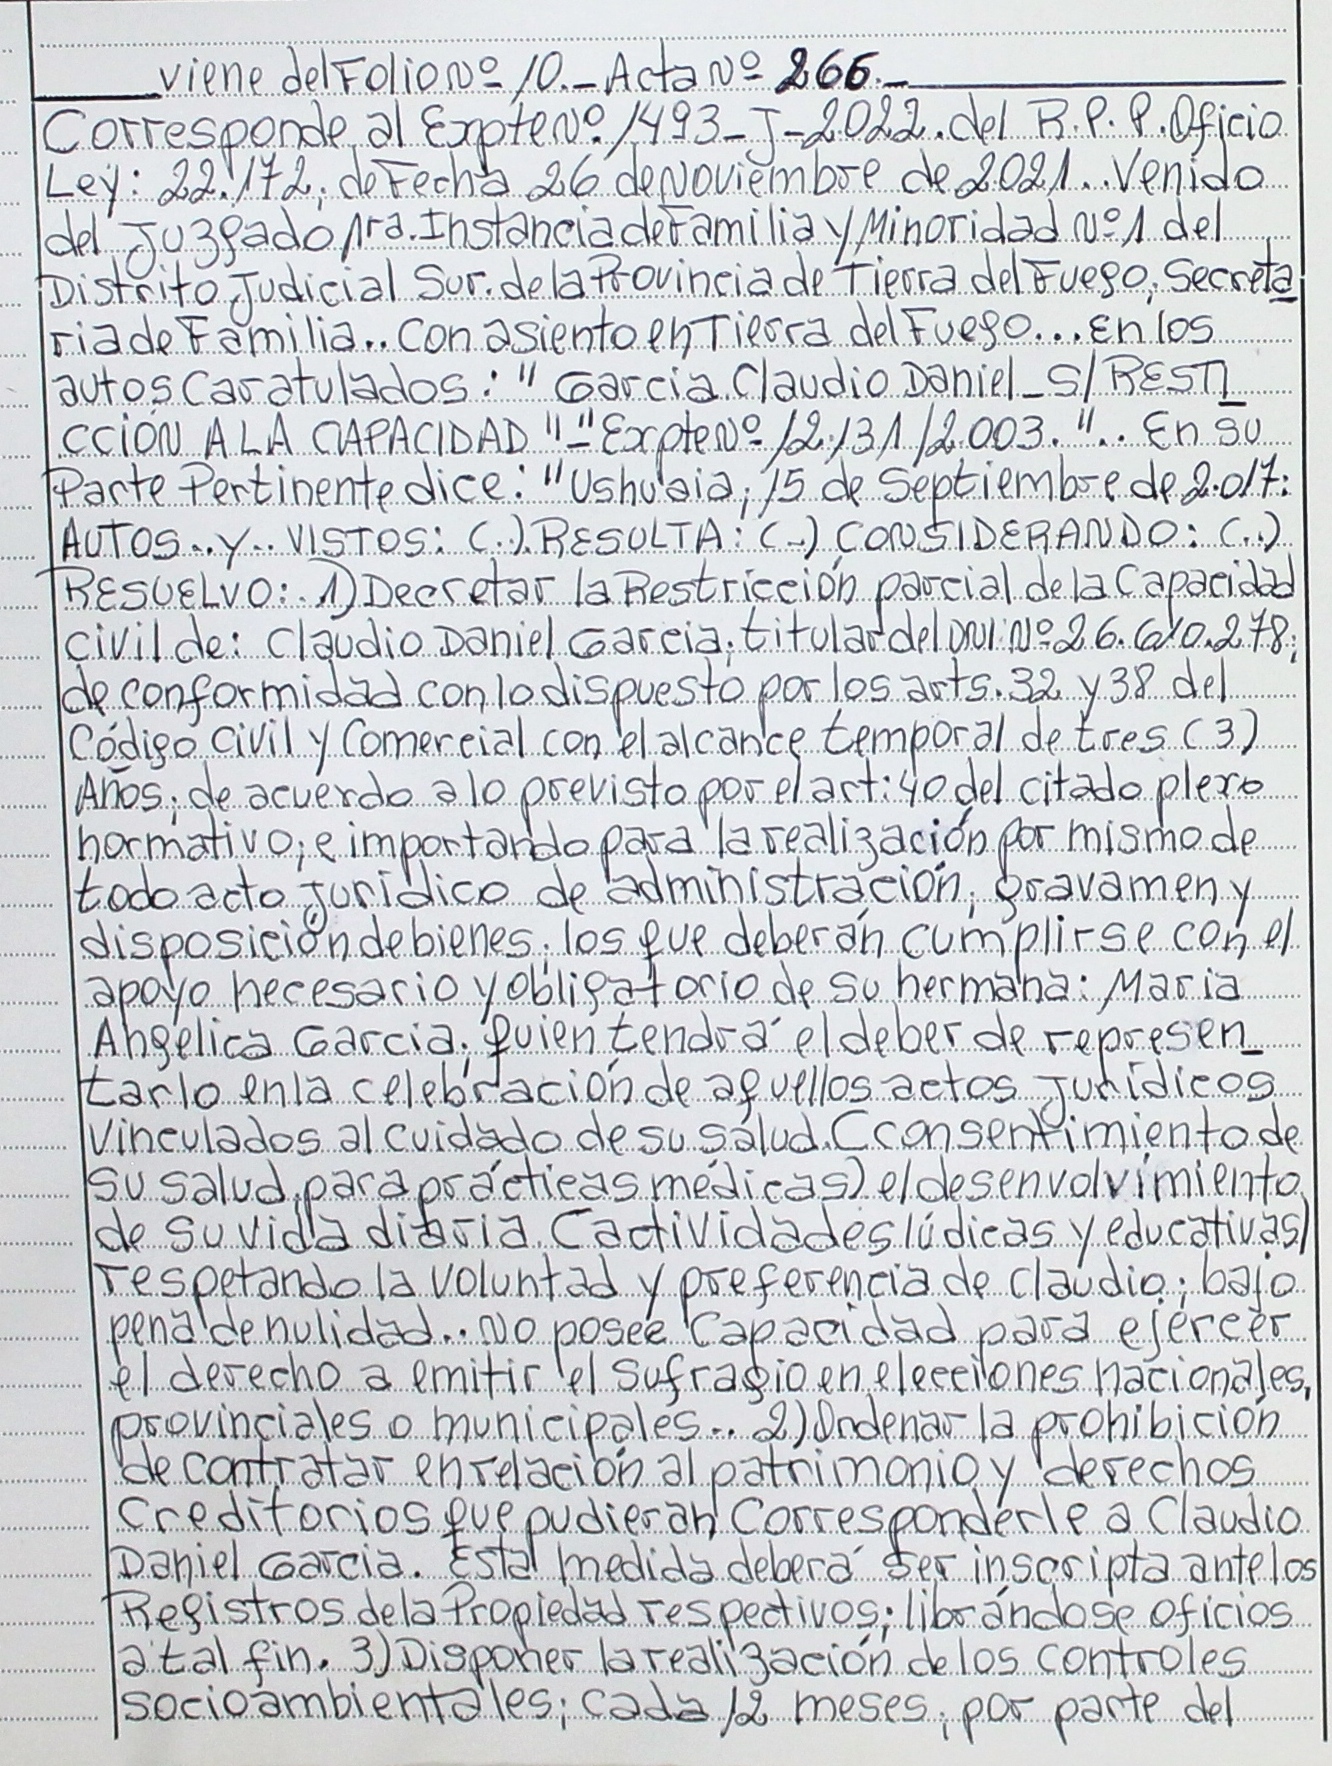 viene del Folio Nº 10._ Acta Nº 266._
Corresponde al Expte Nº. 1493_J_2022. del R.P.P. Oficio
Ley: 22.172; de Fecha 26 de Noviembre de 2.021.. Venido
del Juzgado 1ra. Instancia de Familia y Minoridad Nº 1 del
Distrito Judicial Sur. de la Provincia de Tierra del Fuego; Secreta
ria de Familia.. con asiento en Tierra del Fuego... En los
autos Caratulados: " Garcia Claudio Daniel_ S/ RESTI_
CCIÓN A LA CAPACIDAD "_" Expte Nº 12.131/2.003. ".. En su
Parte Pertinente dice: "Ushuaia; 15 de Septiembre de 2.017:
AUTOS..y.. VISTOS: (..). RESULTA: (..) CONSIDERANDO: (..)
RESUELVO: 1) Decretar la Restricción parcial de la Capacidad
civil de: Claudio Daniel Garcia; titular del DNI: Nº 26.610.278;
de conformidad con lo dispuesto por los arts. 32 y 38 del
Código Civil y Comercial con el alcance temporal de tres (3)
Años; de acuerdo a lo previsto por el art: 40 del citado plexo
normativo; e importando para la realización por mismo de
todo acto Jurídico de administración; gravamen y
disposición de bienes; los que deberán cumplirse con el
apoyo necesario y obligatorio de su hermana: Maria
Angélica Garcia; quien tendrá el deber de represen_
tarlo en la celebración de aquellos actos Jurídicos
Vinculados al cuidado de su salud. (consentimiento de
su salud para prácticas médicas) el desenvolvimiento
de su vida diaria. (actividades lúdicas y educativas)
respetando la voluntad y preferencia de Claudio; bajo
pena de nulidad.. No posee Capacidad para ejercer
el derecho a emitir el sufragio en elecciones nacionales,
provinciales o municipales.. 2) Ordenar la prohibición
de contratar en relación al patrimonio y derechos
Creditorios que pudieran Corresponderle a Claudio
Daniel Garcia. Esta medida deberá ser inscripta ante los
Registros de la Propiedad respectivos; librándose oficios
a tal fin. 3) Disponer la realización de los controles
socioambientales; cada 12 meses; por parte del